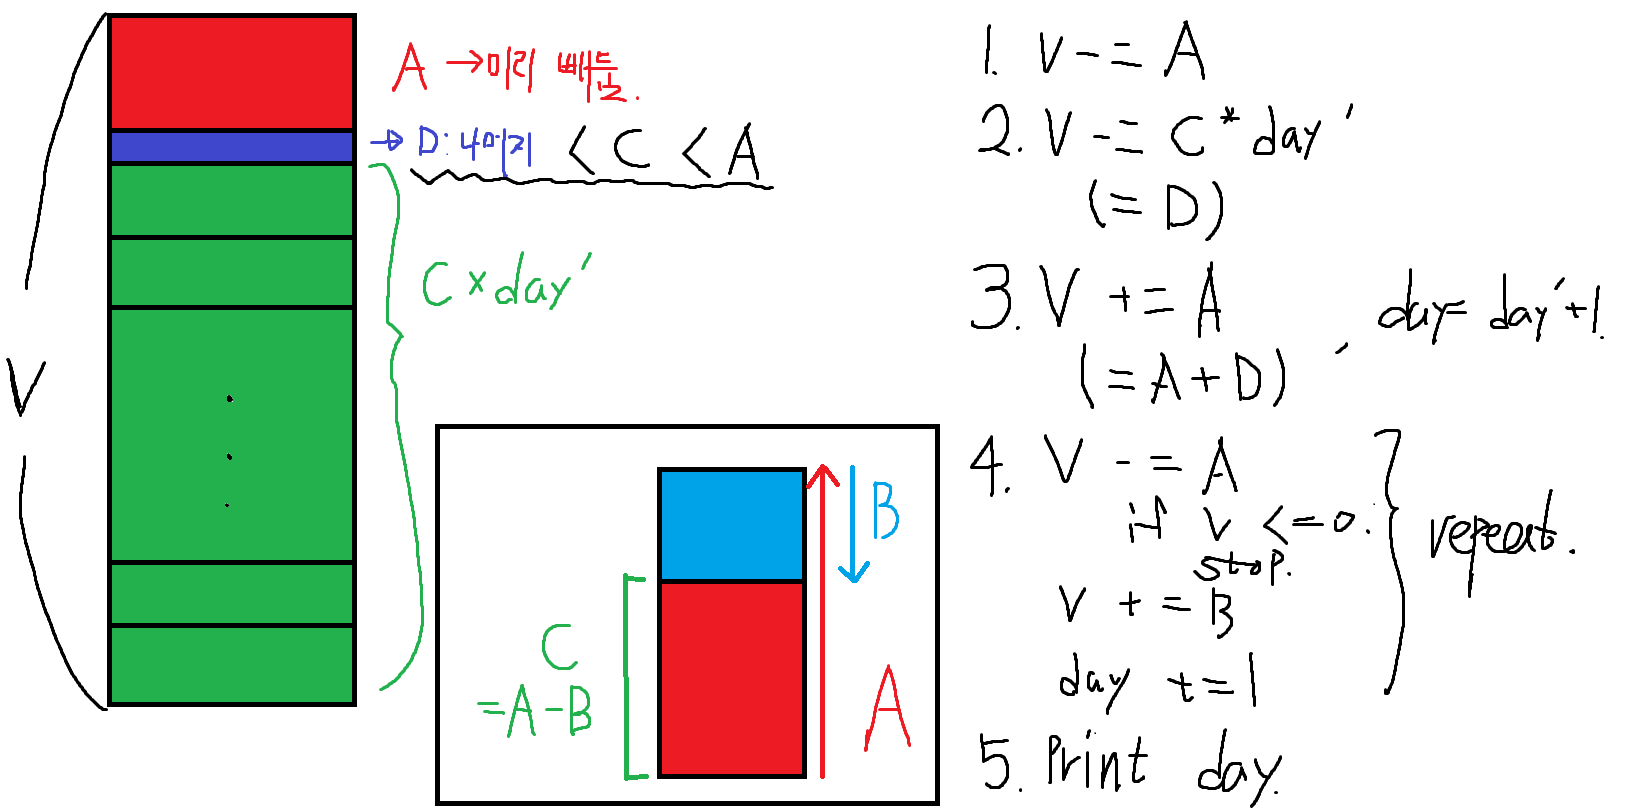 V
A → 미리 빼둔 값.
→ D: 나머지 < C < A
C × day′
B
C
= A - B
A
1. V -= A
2. V -= C * day′
(= D)
3. V += A
(= A + D)
, day = day′ + 1.
4. V -= A
if V <= 0.
stop.
V += B
day += 1
repeat.
5. Print day.